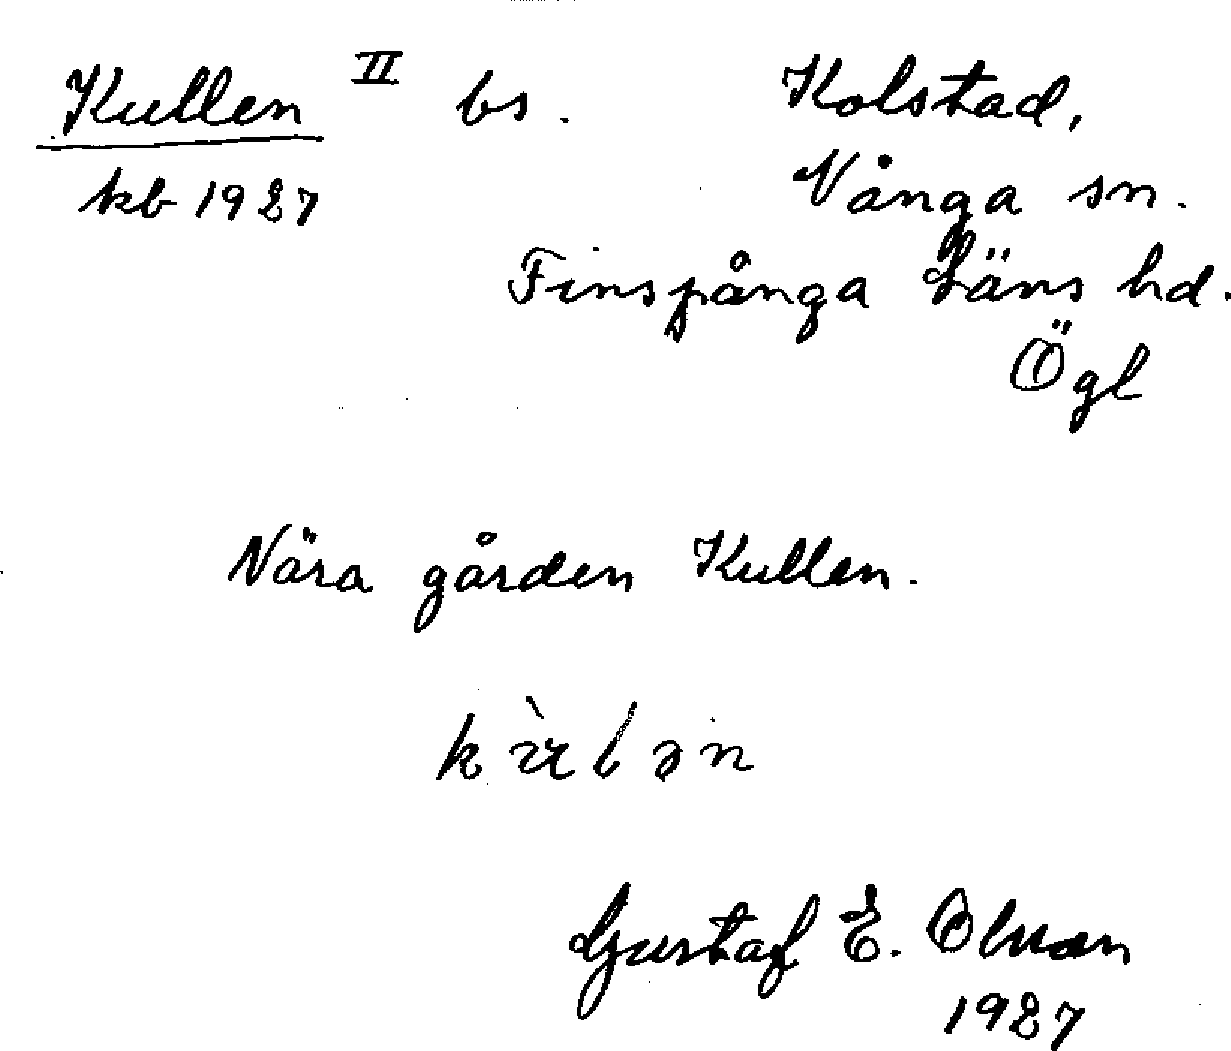 Kullen II bs. Kolstad,
kb 1927 Vånga sn.
Finspånga Läns hd.
Ögl
Nära gården Kullen.
Gustaf E. Olsson
1927